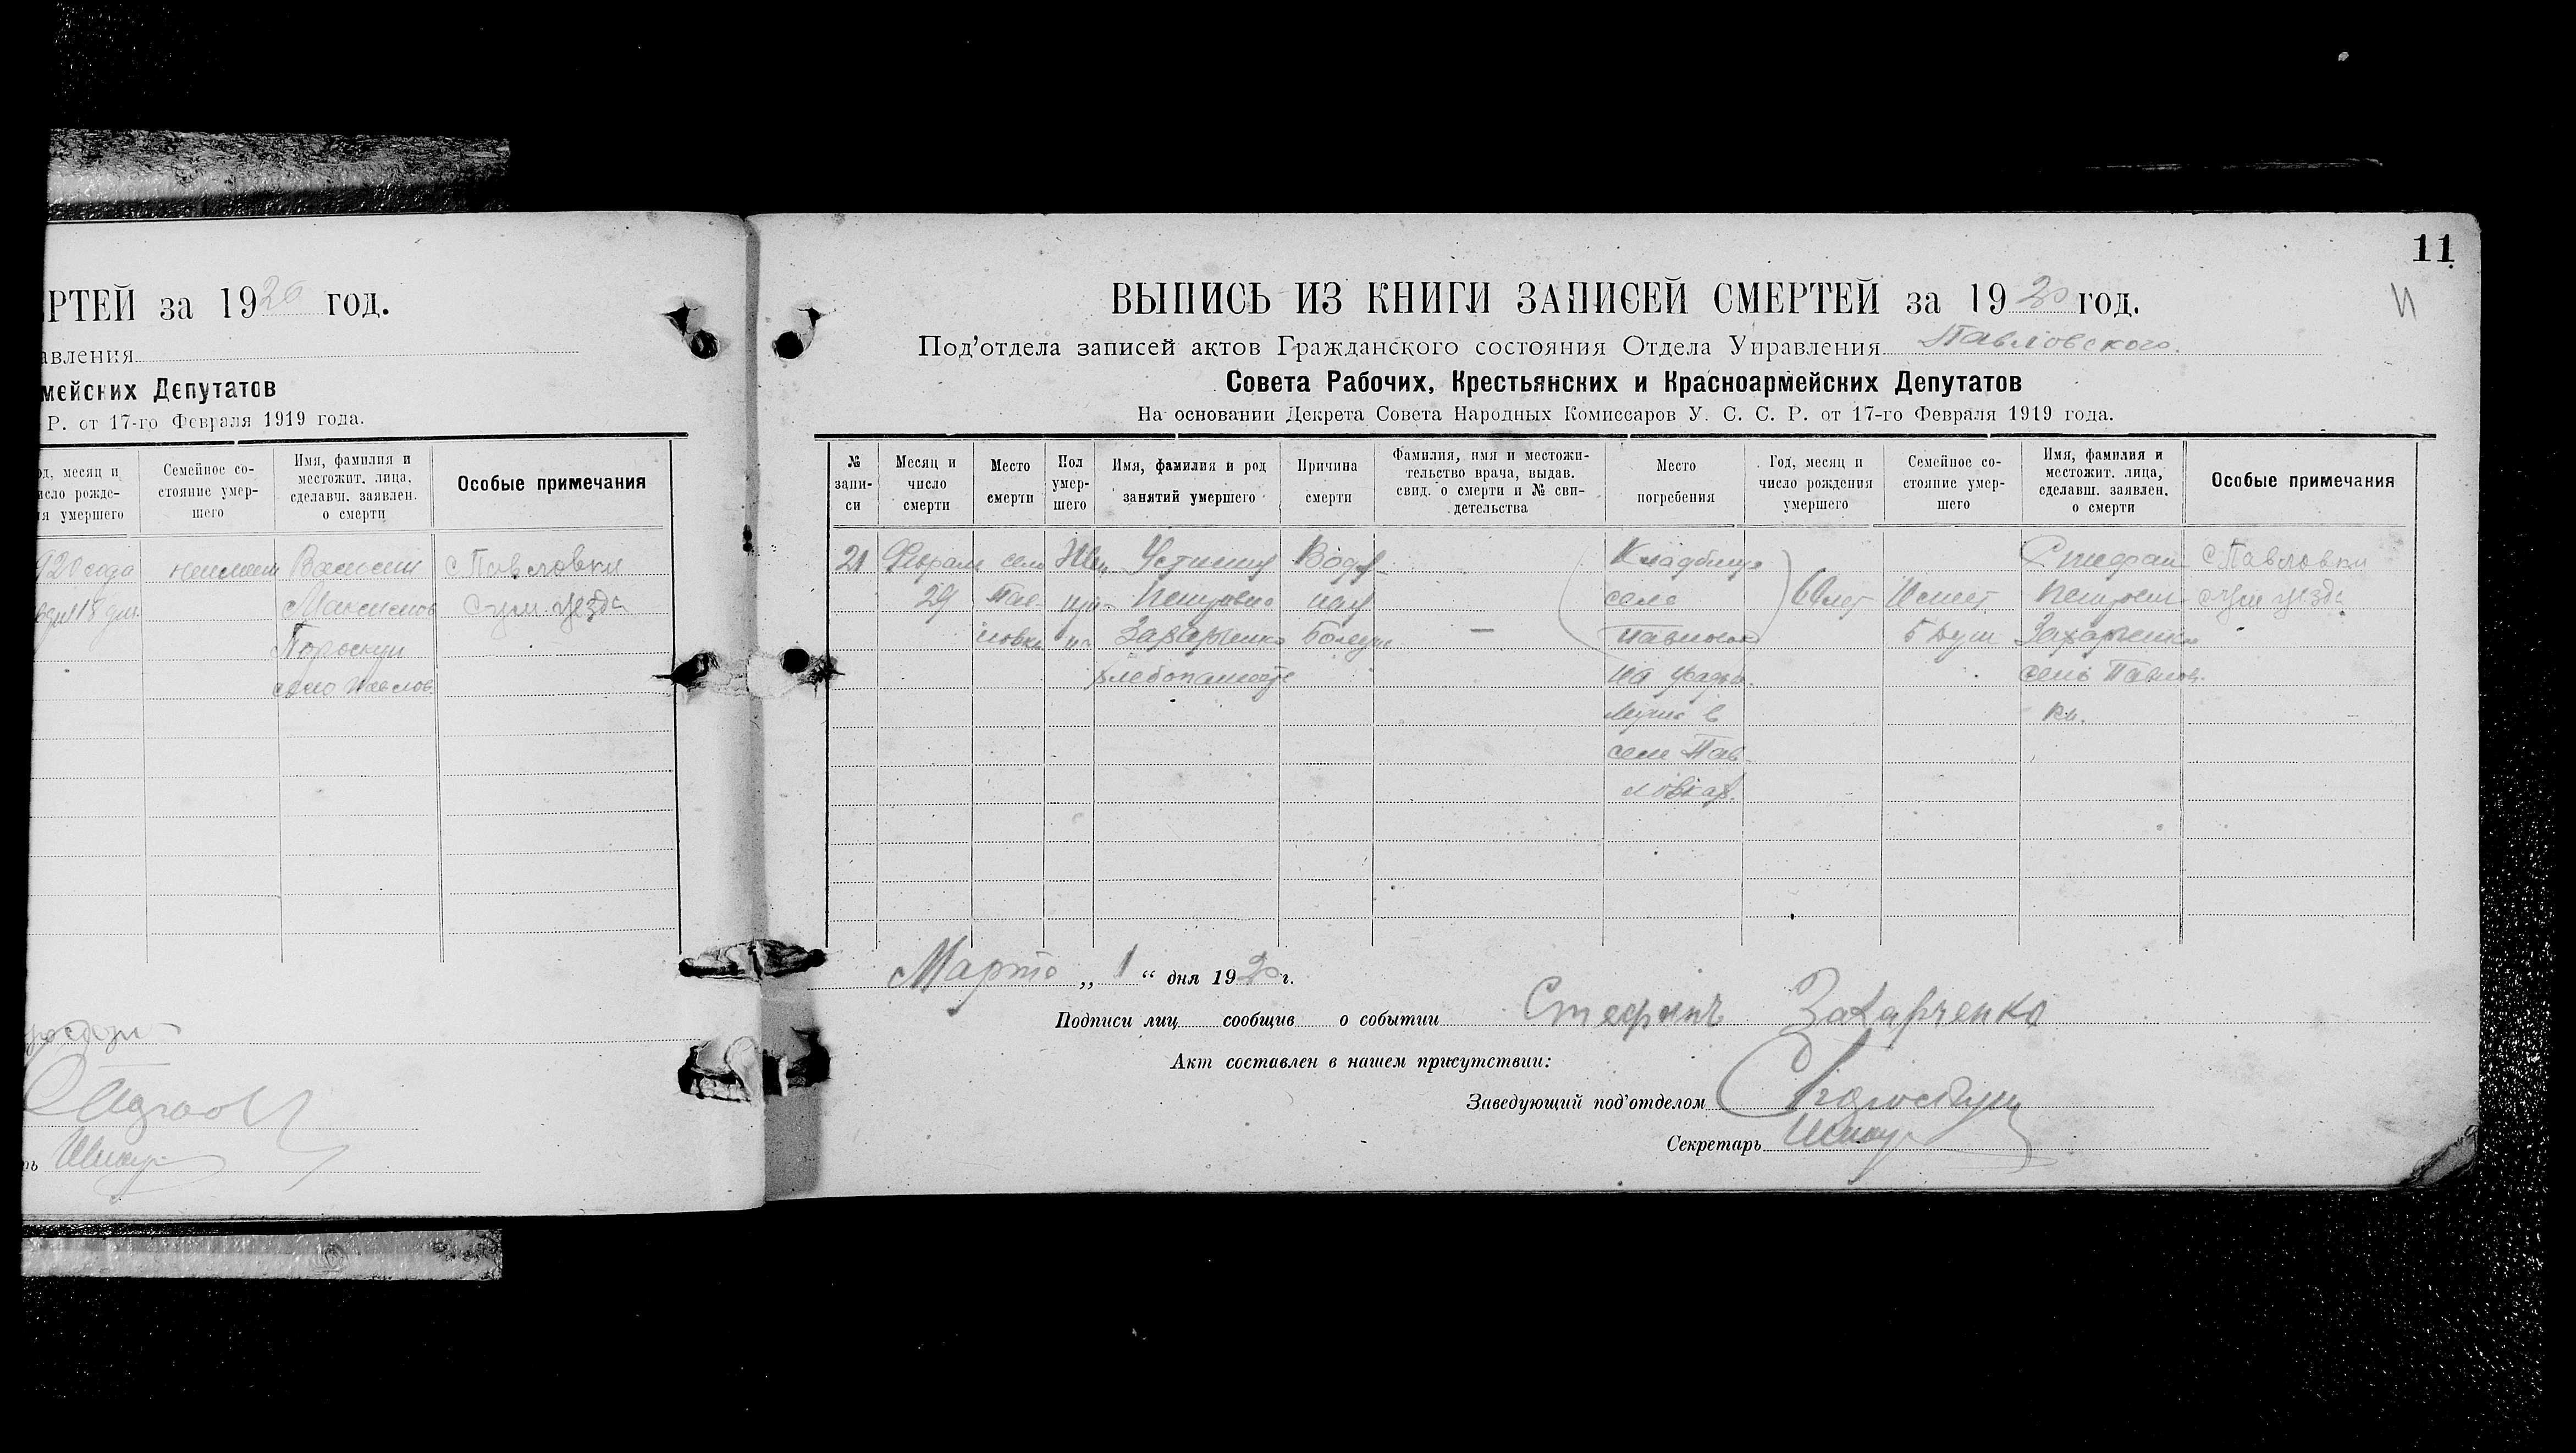 РТЕЙ за 1920 год.
авления
мейских Депутатов
Р. от 17-го Февраля 1919 года.
од, месяц и
исло рожде-
ия умершего
Семейное со-
стояние умер-
шего
Имя, фамилия и
местожит. лица,
сделавш. заявлен.
о смерти
Особые примечания
920 года
18 дня
Максимов
село Павлов
с Павловки
Сум уезда
11
ВЫПИСЬ ИЗ КНИГИ ЗАПИСЕЙ СМЕРТЕЙ за 1920 год.
Под'отдела записей актов Гражданского состояния Отдела Управления Павловского
Совета Рабочих, Крестьянских и Красноармейских Депутатов
На основании Декрета Совета Народных Комиссаров У. С. С. Р. от 17-го Февраля 1919 года.
№
запи-
си
Месяц и
число
смерти
Место
смерти
Пол
умер-
шего
Имя, фамилия и род
занятий умершего
Причина
смерти
Фамилия, имя и местожи-
тельство врача, выдав.
свид. о смерти и № сви-
детельства
Место
погребения
Год, месяц и
число рождения
умершего
Семейное со-
стояние умер-
шего
Имя, фамилия и
местожит. лица,
сделавш. заявлен.
о смерти
Особые примечания
21
Февраля
29
село
Пав-
ловка
Жен
щи-
на
Петровна
Захарченко
Водя
ная
Кладбище
села
Павловка
в
селе Пав-
ловках.
лет
5 душ
Стефан
Захарченко
село Павлов-
ки.
с Павловки
Сум уезда
Марта „ 1 “ дня 1920 г.
Подписи лиц сообщив о событии Стефанъ Захарченко
Акт составлен в нашем присутствии:
Заведующий под'отделом
Секретарь